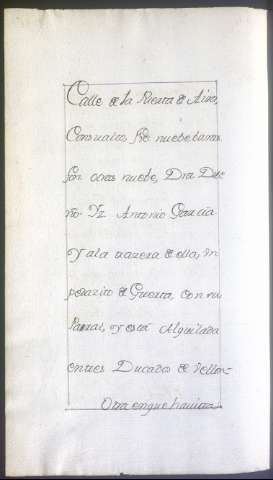 Calle de la Puerta de Aino,
Con su alto, de nuebe baras
son otras nuebe, Dra. Due
ño Dⁿ Antonio Garcia
Y ala trazera de ella, un
pedazito de Guerta, con su
Parral, y está Alquilada
en tres Ducados de Vellon-
Otra en que havitan